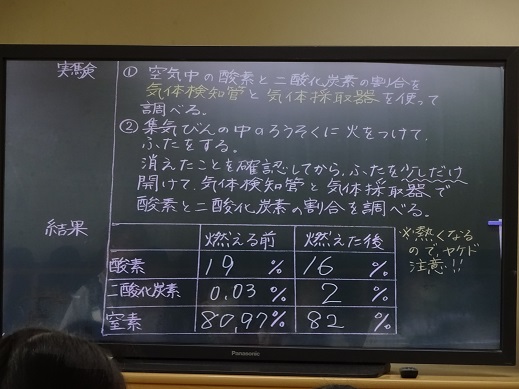 実験
① 空気中の酸素と二酸化炭素の割合を
気体検知管と気体採取器を使って
調べる。
② 集気びんの中のろうそくに火をつけて、
ふたをする。
消えたことを確認してから、ふたを少しだけ
開けて、気体検知管と気体採取器で
酸素と二酸化炭素の割合を調べる。
結果
燃える前 燃えた後
酸素 19 % 16 %
二酸化炭素 0.03 % 2 %
窒素 80.97% 82 %
※熱くなる
ので、ヤケド
注意!!
Panasonic